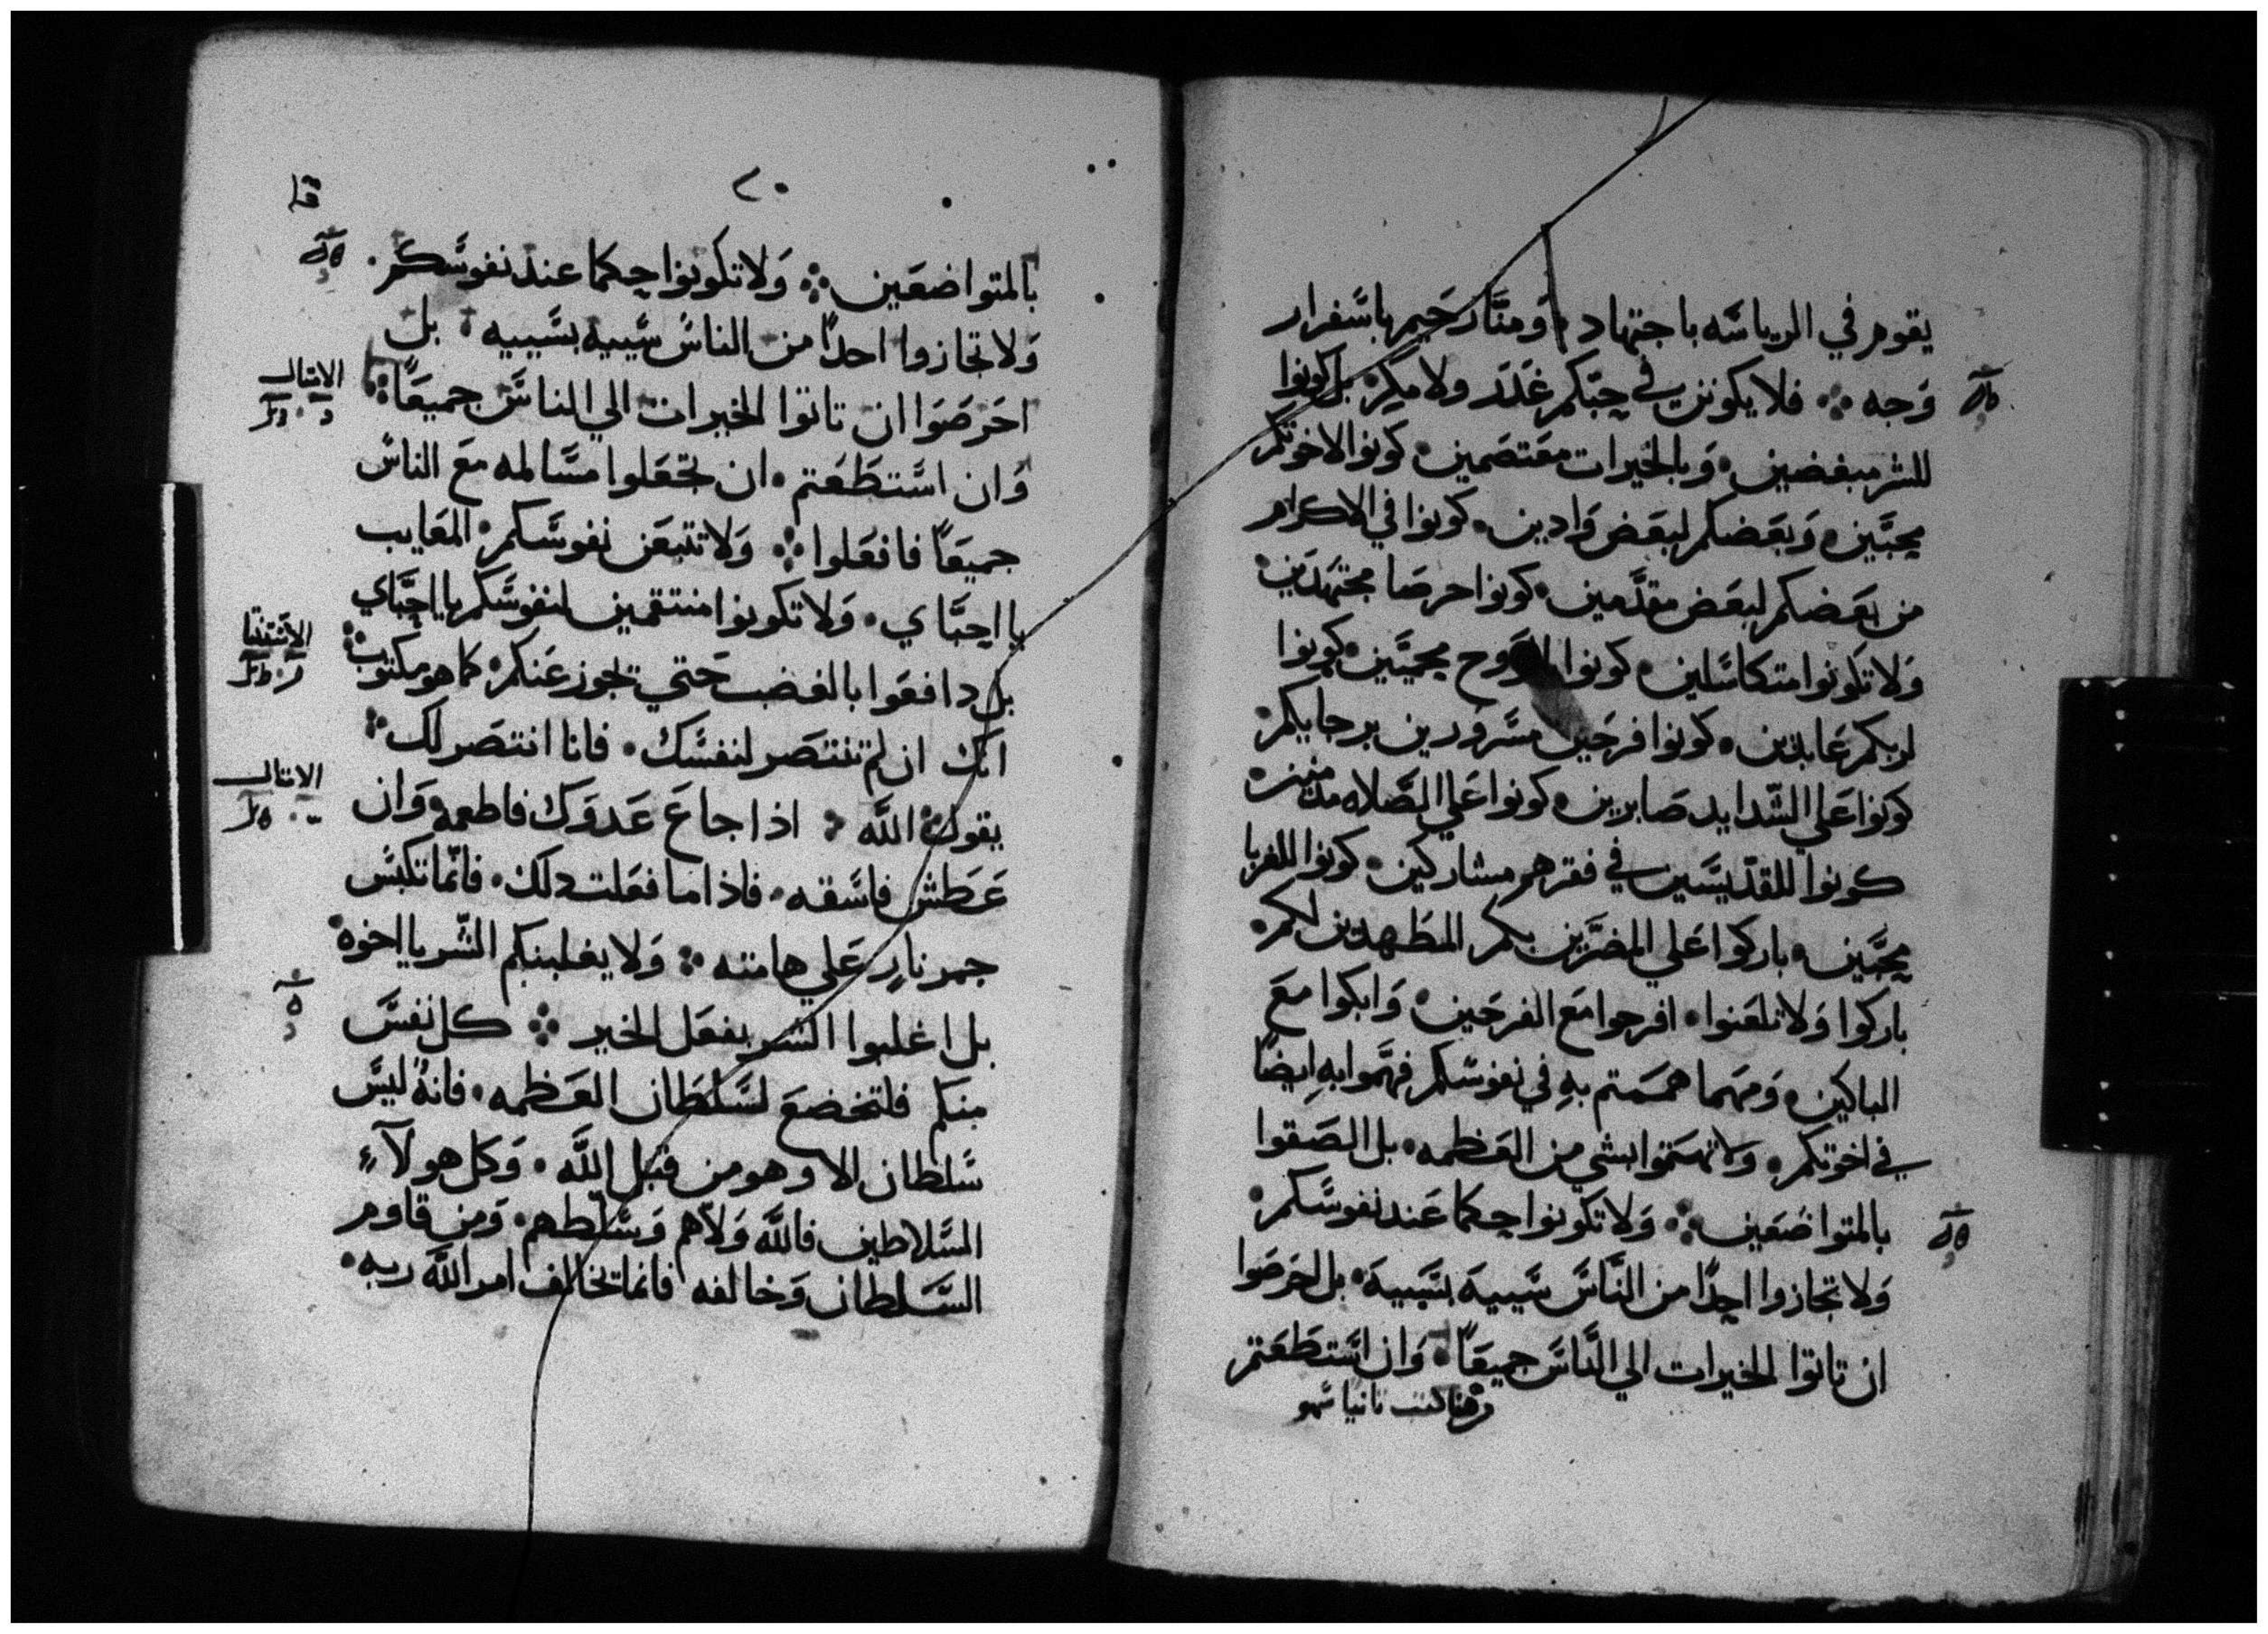 يقوم في الرياسَه باجتهاد • وَمنَّا رَحيم باسَفرار
وَجه ⁘ فلا يكونن في حبّكم غَدَر ولا مكر • بل كونوا
للشر مبغضين • وَبالخيرات معَتصَمين • كونوا لاخوتكم
محبَّين • وَبعَضكم لبعَض وَادين • كونوا في الاكرام
من بعَضكم لبعَض مقدَّمين • كونوا حرصَا مجتهدَين •
وَلا تكونوا متكاسَلين • كونوا للروح محبَّين • كونوا
لربكم عَابدين • كونوا فرحَين مسَرورين برجايكم •
كونوا عَلي الشّدايد صَابرين • كونوا عَلي الصَّلاه مدمنين •
كونوا للقدّيسَين في فقرهم مشاركين • كونوا للغربا
محبَّين • باركوا عَلي المضرَّين بكم المطَهدين لكم •
باركوا وَلا تلعَنوا • افرحوا معَ الفرحَين • وَابكوا معَ
الباكين • وَمهَما همَمَتم بهِ في نفوسَكم فهمَّوا بهِ ايضًا
في اخوتكم • ولا تهمَتموا بشي من العَظمه • بل الصَقوا
بالمتواضَعَين ⁘ وَلا تكونوا حكما عَند نفوسَكم •
وَلا تجازوا احدًا من النَّاسَ سَيبيهَ بسَيبيهَ • بل احَرصَوا
ان تاتوا الخيرات الي النَّاسَ جميعَاً • وَان اسَتطَعَتم
وهنا كتبت ثانيا سَهو
٢٠
قا
بالمتواضعَين ⁘ وَلا تكونوا حكما عند نفوسَكم •
وَلا تجازوا احدًا من الناسَ سَيبيه بسَيبيه • بل
احَرصَوا ان تاتوا الخيرات الي الناسَ جميعَاً ⁘
وَان اسَتطَعَتم • ان تجعَلوا مسَالمه معَ الناسَ
جميعَاً فافعَلوا ⁘ وَلا تتبعَن نفوسَكم • المعَايب
يا احبَّاي • وَلا تكونوا منتقمين لنفوسَكم يا احبَّاي
بل دافعَوا بالغضب حَتي تجوز عَنكم • كما هو مكتوب ⁘
انك ان لم تنتصَر لنفسَك • فانا انتصَر لك ⁘
يقول اللَّه ⁘ اذا جاعَ عَدوَك فاطعمه وَان
عَطَش فاسَقه • فاذا ما فعَلت دلك • فانّما تكبسَ
جمر نارٍ عَلي هامته ⁘ وَلا يغلبنكم الشّر يا اخوه •
بل اغلبوا الشر بفعَل الخير ⁘ كل نفسَ
منكم فلتخضعَ لسَلطَان العَظمه • فانهُ ليسَ
سَلطان الا وهو من قبل اللَّه • وَكل هولآءِ
السَّلاطين فاللَّه وَلاّهم وَسَلّطهم • وَمن قاوم
السَّلطان وَخالفه فانما تخالف امر اللَّه ربه •
الامثال
الاستثنا
الامثال